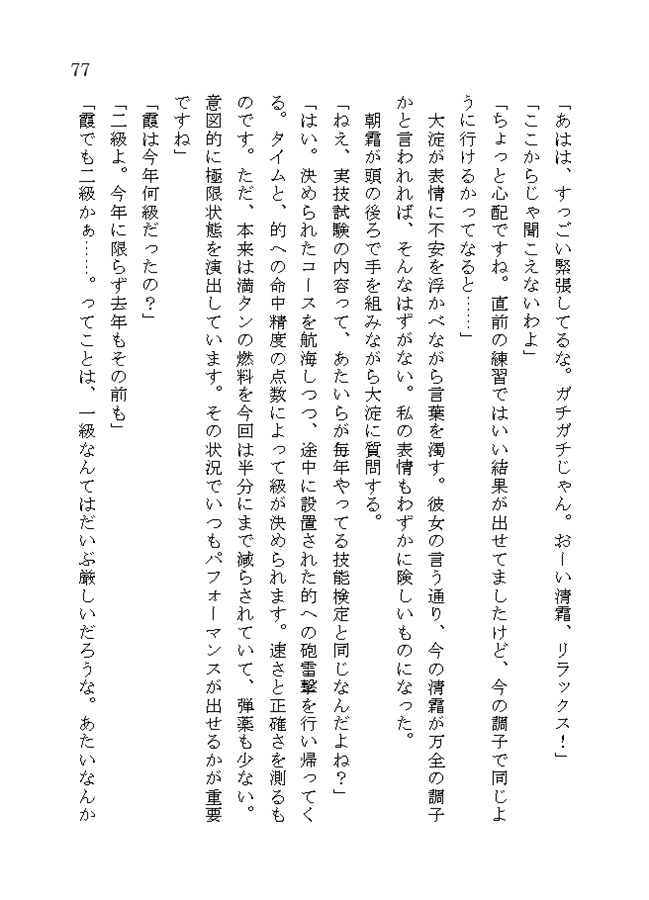 77
「あはは、すっごい緊張してるな。ガチガチじゃん。おーい清霜、リラックス！」
「ここからじゃ聞こえないわよ」
「ちょっと心配ですね。直前の練習ではいい結果が出せてましたけど、今の調子で同じよ
うに行けるかってなると……」
大淀が表情に不安を浮かべながら言葉を濁す。彼女の言う通り、今の清霜が万全の調子
かと言われれば、そんなはずがない。私の表情もわずかに険しいものになった。
朝霜が頭の後ろで手を組みながら大淀に質問する。
「ねえ、実技試験の内容って、あたいらが毎年やってる技能検定と同じなんだよね？」
「はい。決められたコースを航海しつつ、途中に設置された的への砲雷撃を行い帰ってく
る。タイムと、的への命中精度の点数によって級が決められます。速さと正確さを測るも
のです。ただ、本来は満タンの燃料を今回は半分にまで減らされていて、弾薬も少ない。
意図的に極限状態を演出しています。その状況でいつもパフォーマンスが出せるかが重要
ですね」
「霞は今年何級だったの？」
「二級よ。今年に限らず去年もその前も」
「霞でも二級かぁ……。ってことは、一級なんてはだいぶ厳しいだろうな。あたいなんか